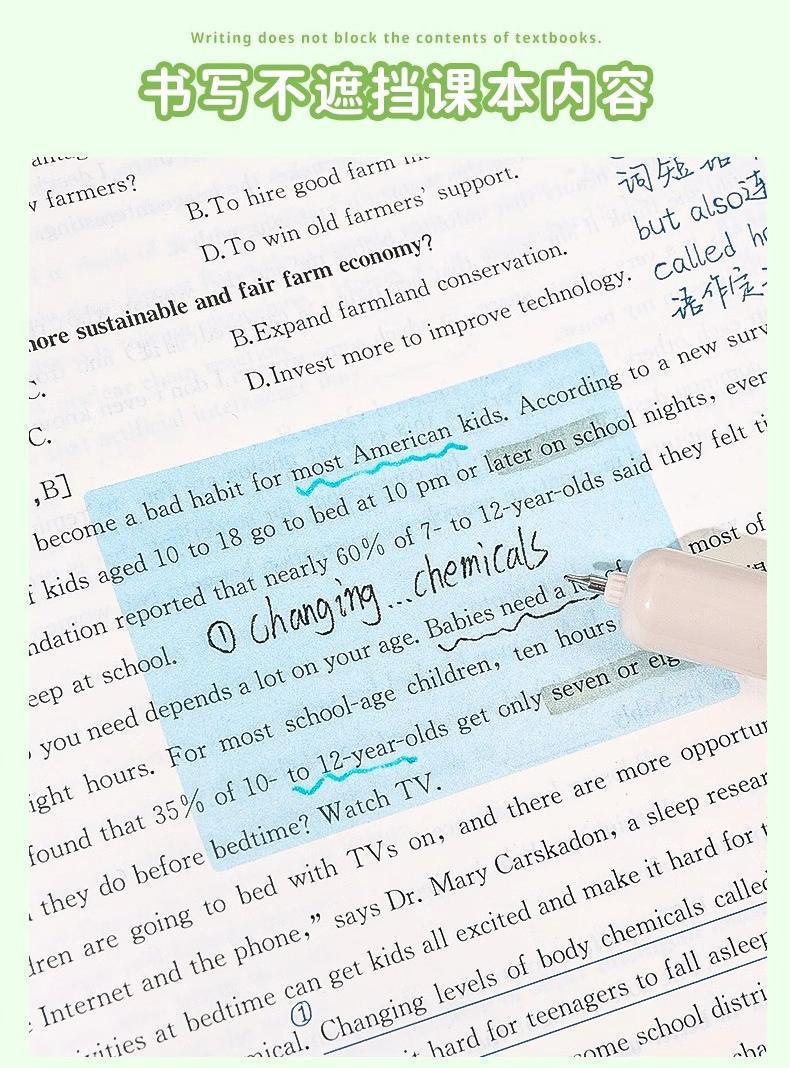 Writing does not block the contents of textbooks.
书写不遮挡课本内容
farmers?
B.To hire good farm
D.To win old farmers' support.
more sustainable and fair farm economy?
B.Expand farmland conservation.
D.Invest more to improve technology.
C.
C.
,B]
词短语
but also连
called
语作定
become a bad habit for most American kids. According to a new
kids aged 10 to 18 go to bed at 10 pm or later on school nights, even
reported that nearly 60% of 7- to 12-year-olds said they felt
at school.
① changing...chemicals
most of
you need depends a lot on your age. Babies need a
hours. For most school-age children, ten hours
found that 35% of 10- to 12-year-olds get only seven or
they do before bedtime? Watch TV.
are going to bed with TVs on, and there are more
Internet and the phone,” says Dr. Mary Carskadon, a sleep
at bedtime can get kids all excited and make it hard for
① Changing levels of body chemicals called
hard for teenagers to fall asleep
some school